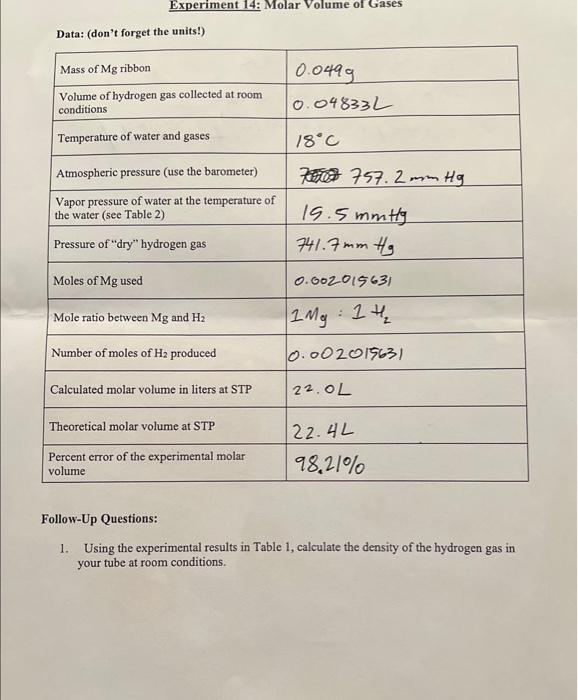 Experiment 14: Molar Volume of Gases
Data: (don't forget the units!)
Mass of Mg ribbon
0.049g
Volume of hydrogen gas collected at room
conditions
0.04833L
Temperature of water and gases
18°C
Atmospheric pressure (use the barometer)
757.2 mm Hg
Vapor pressure of water at the temperature of
the water (see Table 2)
15.5 mmHg
Pressure of "dry" hydrogen gas
741.7mm Hg
Moles of Mg used
0.002015631
Mole ratio between Mg and H2
1Mg : 1 H2
Number of moles of H2 produced
0.002015631
Calculated molar volume in liters at STP
22.0L
Theoretical molar volume at STP
22.4L
Percent error of the experimental molar
volume
98.21%
Follow-Up Questions:
1. Using the experimental results in Table 1, calculate the density of the hydrogen gas in
your tube at room conditions.